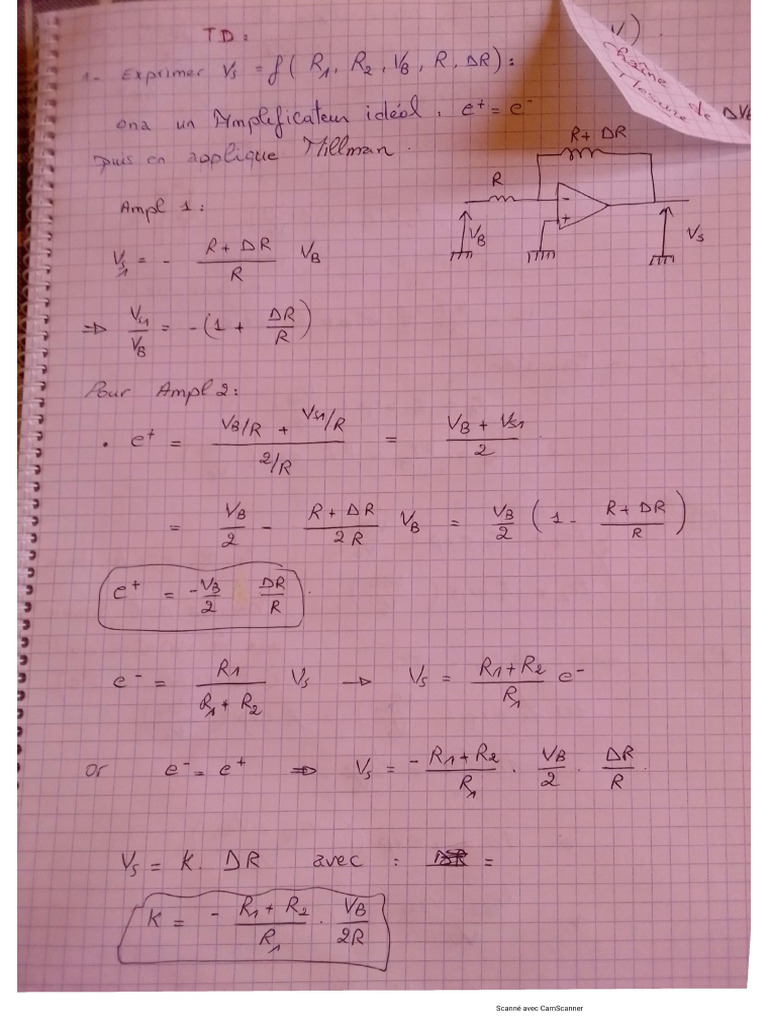 TD:
V)
1- Exprimer Vs = f( R1, R2, VB, R, ΔR):
Chaîne de
Mesure
ΔVB
ona un Amplificateur idéal, e+ = e-
puis en applique Millman.
R+ ΔR
R
VB
Vs
-
+
Ampl 1:
Vs1 = - (R+ ΔR)/R VB
⇒ Vs1/VB = -(1 + ΔR/R)
Pour Ampl 2:
• e+ = (VB/R + Vs1/R)/(2/R) = (VB + Vs1)/2
= VB/2 - (R+ ΔR)/2R VB = VB/2 (1 - (R+ ΔR)/R)
e+ = -VB/2 ΔR/R.
e- = R1/(R1+R2) Vs → Vs = (R1+R2)/R1 e-
or e- = e+ ⇒ Vs = -(R1+R2)/R1 . VB/2 . ΔR/R.
Vs = K. ΔR avec : =
K = - (R1+R2)/R1 . VB/2R
Scanné avec CamScanner